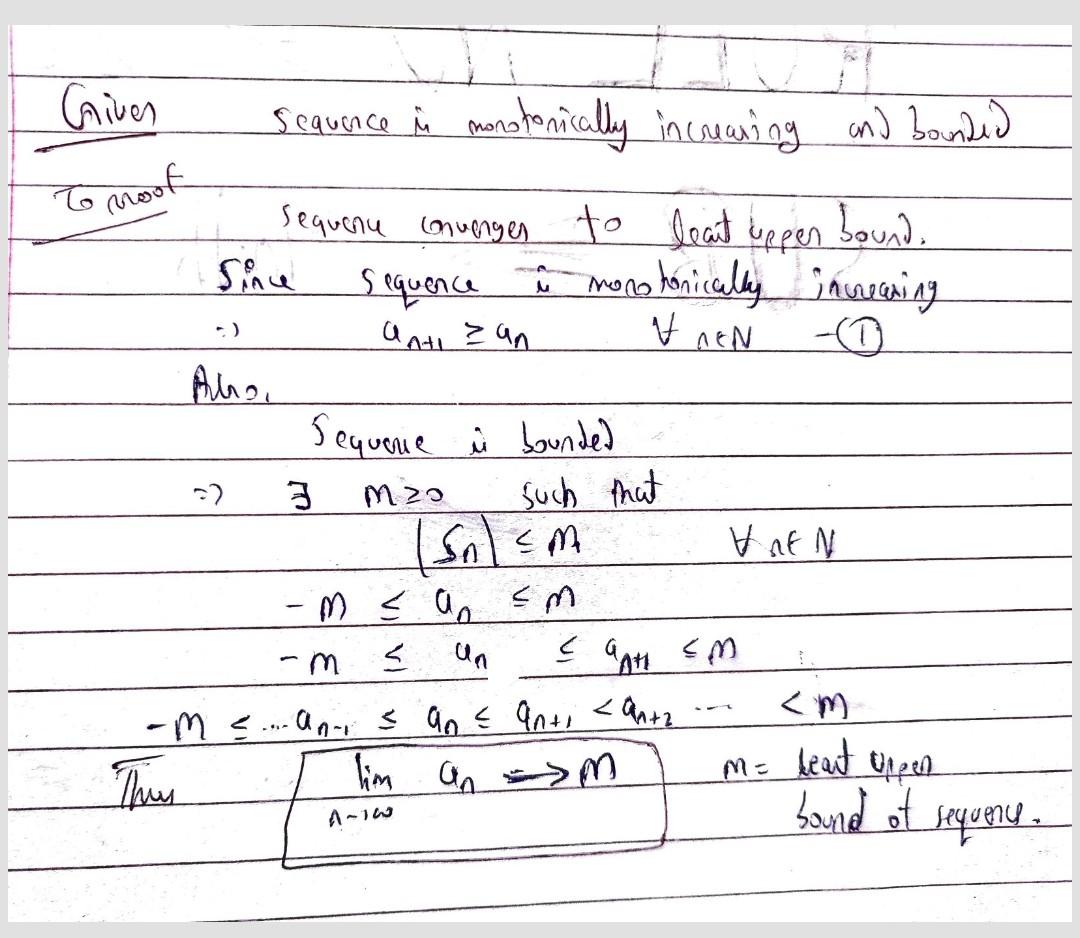 Given Sequence is monotonically increasing and bounded
To proof
Sequence converges to least upper bound.
Since sequence is monotonically increasing
=> aₙ₊₁ ≥ aₙ ∀ n∈N -①
Also,
Sequence is bounded
=> ∃ m≥0 such that
|Sₙ| ≤ m ∀ n∈N
-m ≤ aₙ ≤ m
-m ≤ aₙ ≤ aₙ₊₁ ≤ m
-m ≤ ... aₙ₋₁ ≤ aₙ ≤ aₙ₊₁ < aₙ₊₂ ... < m
Thus lim aₙ → m m = least upper
n→∞ bound of sequence.